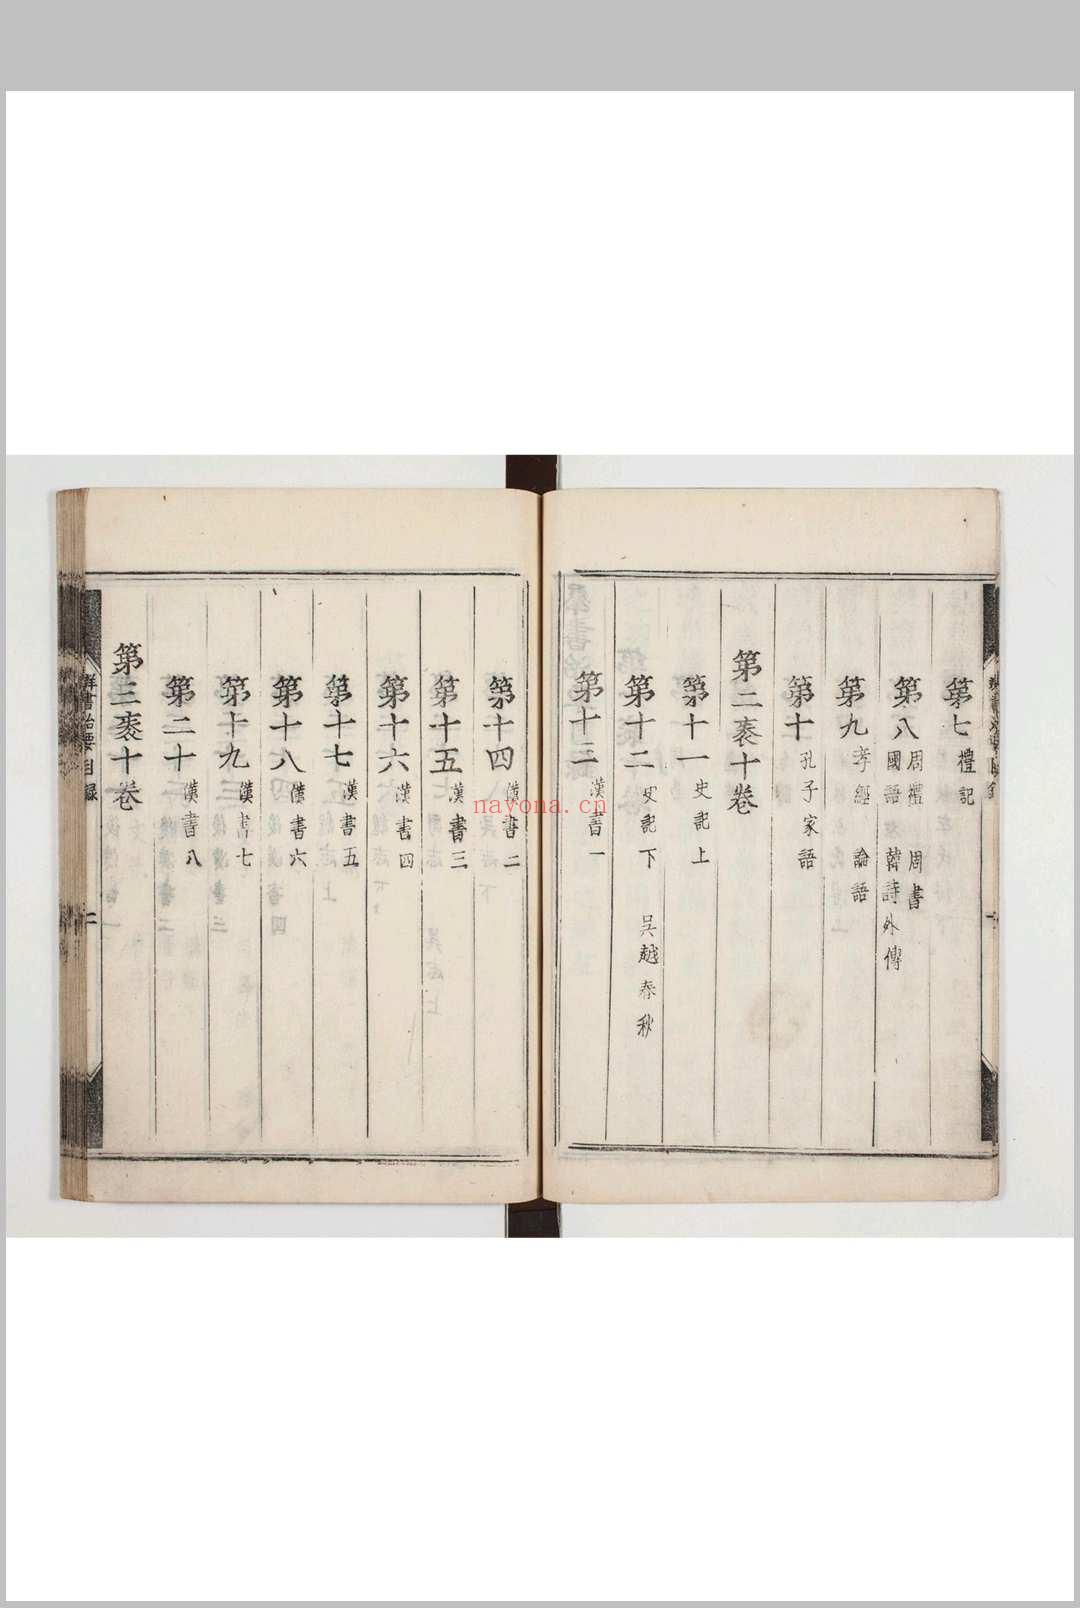 第七 禮記
第八 周禮 周書 國語 韓詩外傳
第九 孝經 論語
第十 孔子家語
第二袠十卷
第十一 史記上
第十二 史記下 吳越春秋
第十三 漢書一
第十四 漢書二
第十五 漢書三
第十六 漢書四
第十七 漢書五
第十八 漢書六
第十九 漢書七
第二十 漢書八
第三袠十卷
群書治要目録 二
nayona.cn